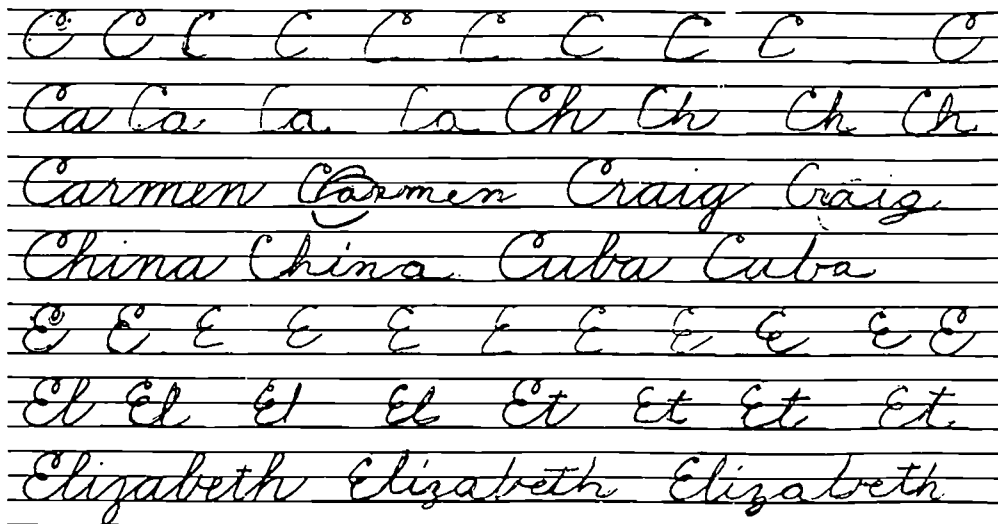 C C C C C C C C C C
Ca Ca Ca Ca Ch Ch Ch Ch
Carmen Carmen Craig Craig
China China Cuba Cuba
E E E E E E E E E E E
El El El El Et Et Et Et
Elizabeth Elizabeth Elizabeth